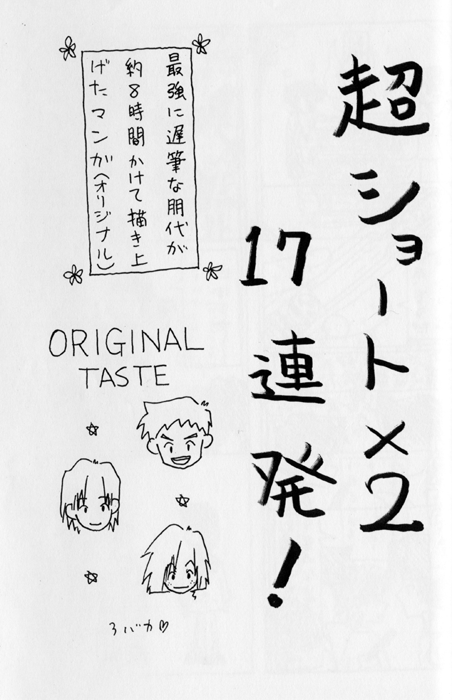 超ショート×2
17連発!
最強に遅筆な朋代が
約8時間かけて描き上
げたマンガ(オリジナル)
ORIGINAL
TASTE
3バカ♡